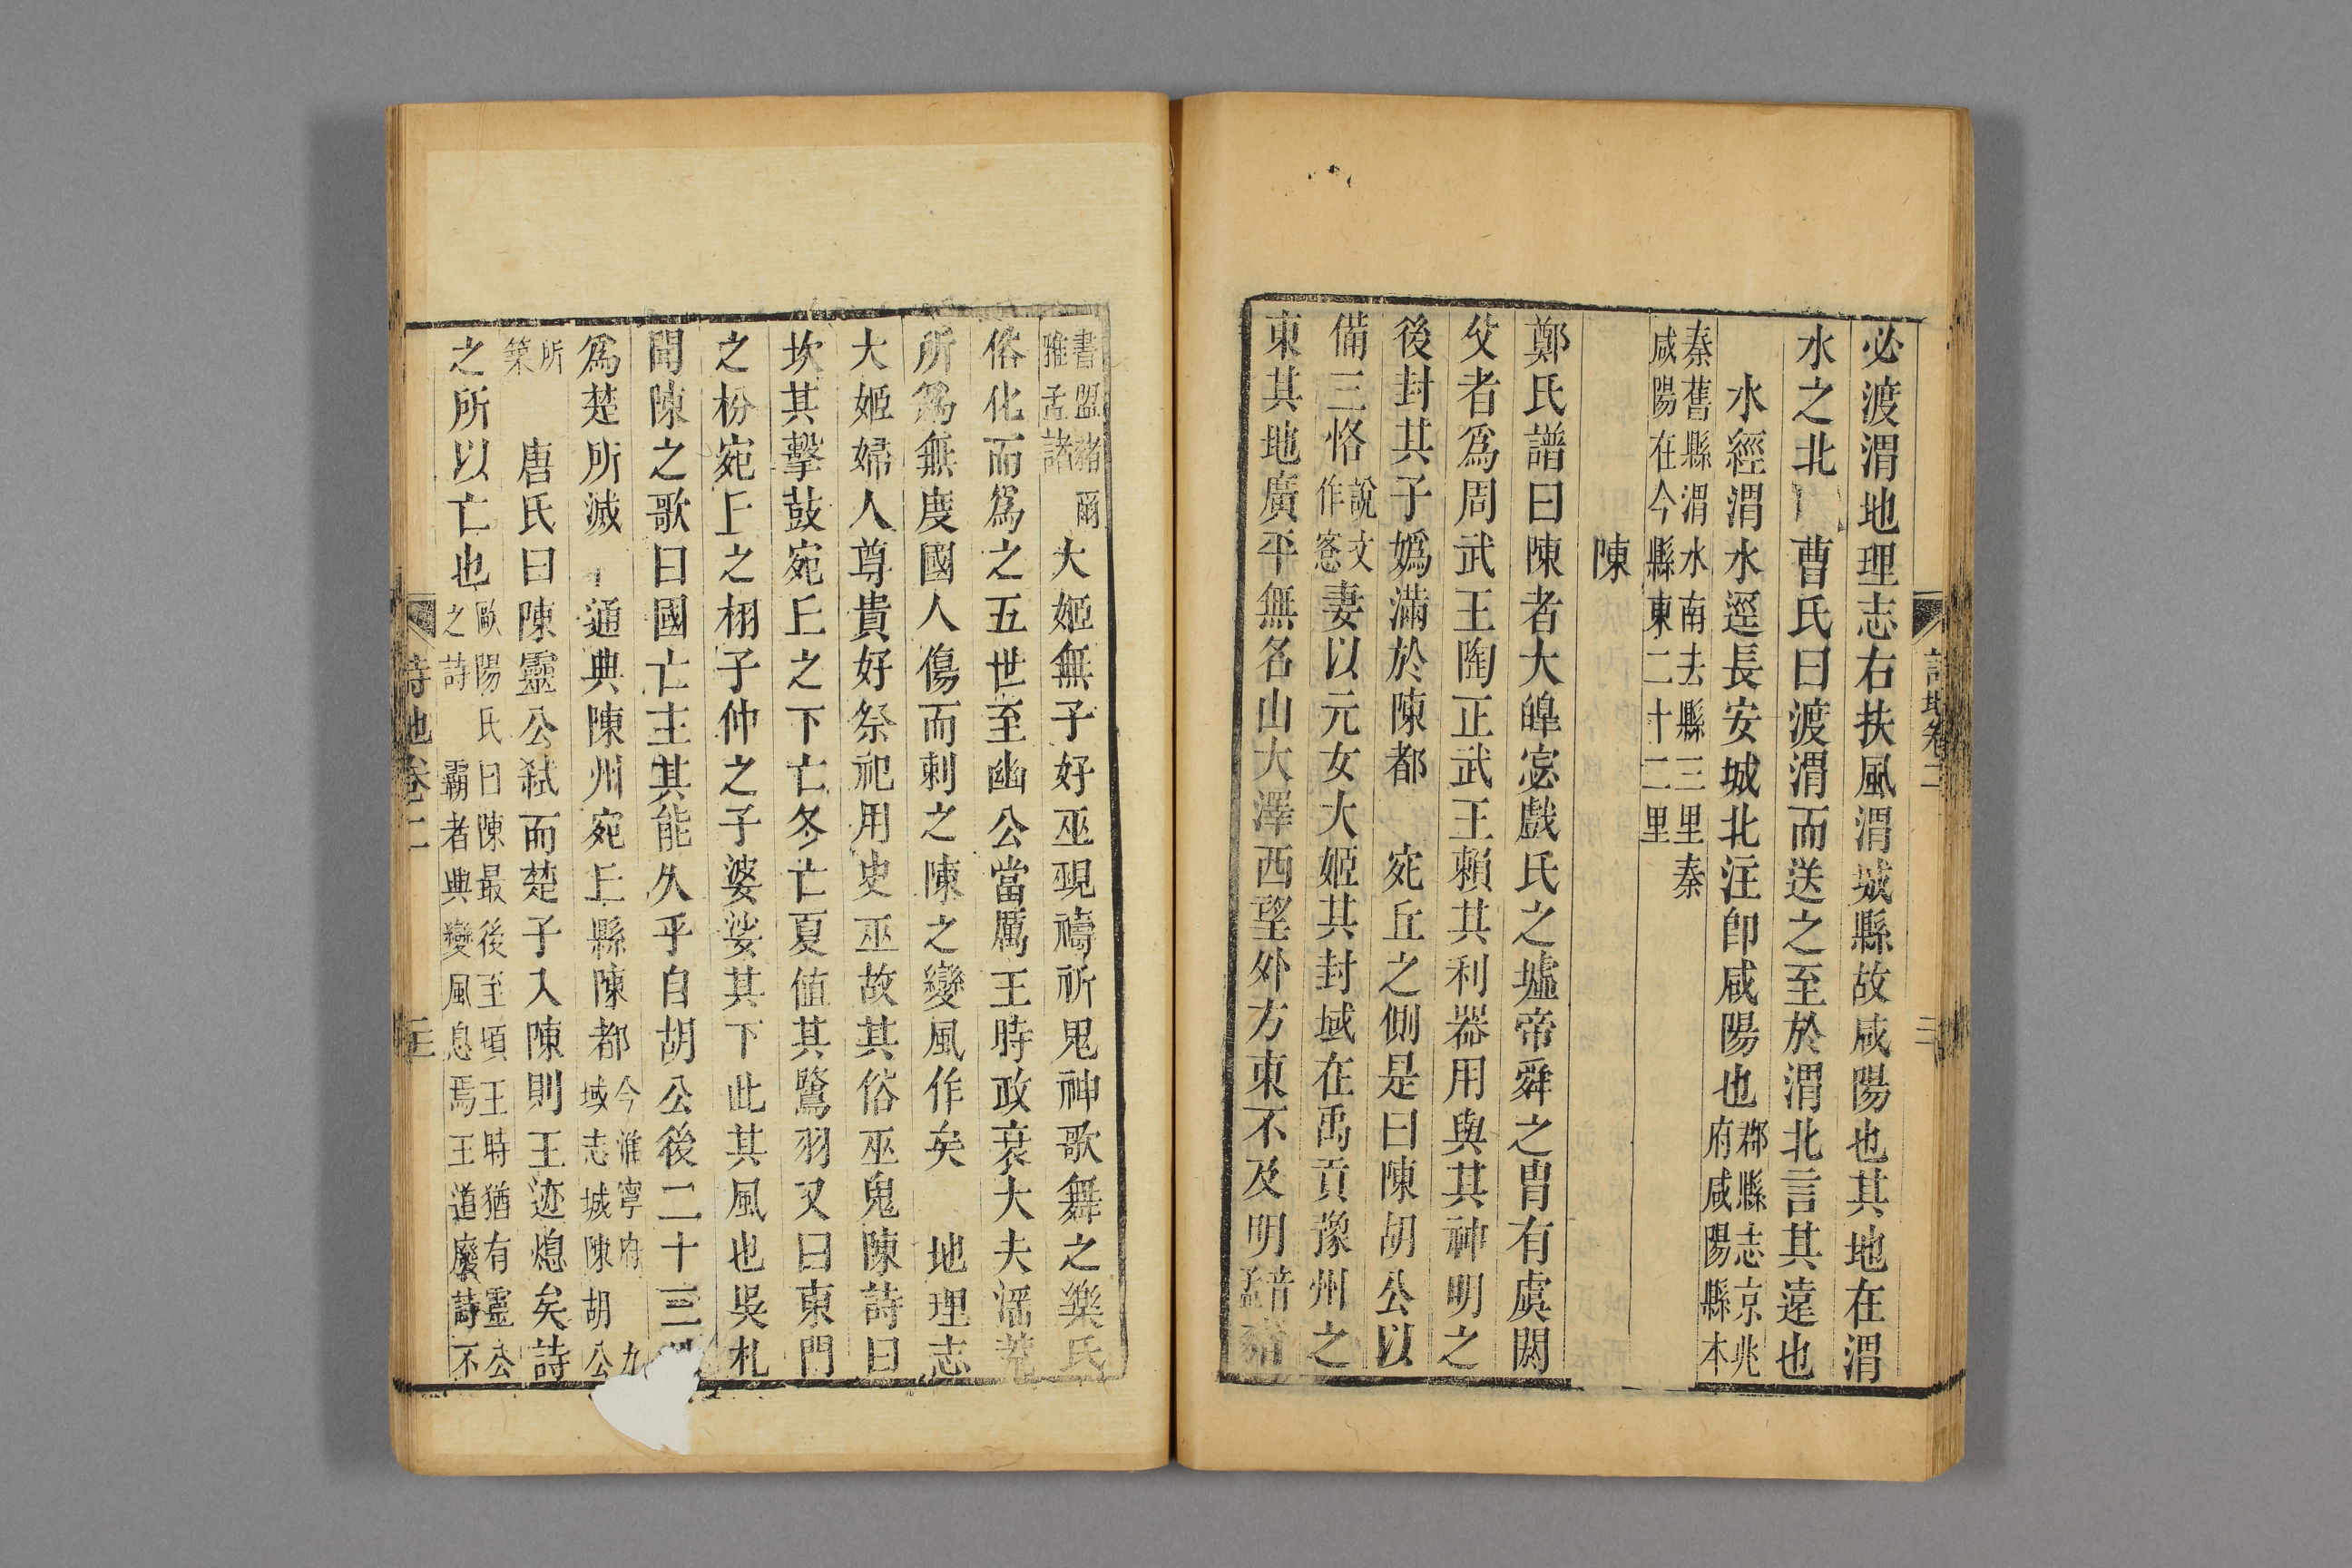 必渡渭地理志右扶風渭城縣故咸陽也其地在渭
水之北 曹氏曰渡渭而送之至於渭北言其遠也
水經渭水逕長安城北注卽咸陽也郡縣志京兆府咸陽縣本
秦舊縣渭水南去縣三里秦咸陽在今縣東二十二里
陳
鄭氏譜曰陳者大皥宓戲氏之墟帝舜之胄有虞閼
父者爲周武王陶正武王賴其利器用與其神明之
後封其子嬀滿於陳都 宛丘之側是曰陳胡公以
備三恪說文作窓妻以元女大姬其封域在禹貢豫州之
東其地廣平無名山大澤西望外方東不及明音孟豬
詩地卷二
書盟豬爾雅孟諸大姬無子好巫覡禱祈鬼神歌舞之樂民
俗化而爲之五世至幽公當厲王時政衰大夫淫荒
所爲無度國人傷而刺之陳之變風作矣 地理志
大姬婦人尊貴好祭祀用史巫故其俗巫鬼陳詩曰
坎其擊鼓宛丘之下亡冬亡夏値其鷺羽又曰東門
之枌宛丘之栩子仲之子婆娑其下此其風也吳札
聞陳之歌曰國亡主其能久乎自胡公後二十三
爲楚所滅 通典陳州宛丘縣陳都今淮寧府 九域志城陳胡公
所築 唐氏曰陳靈公弒而楚子入陳則王迹熄矣詩
之所以亡也歐陽氏曰陳最後至頃王時猶有靈公之詩 霸者興變風息焉王道廢詩不
詩地卷二 三